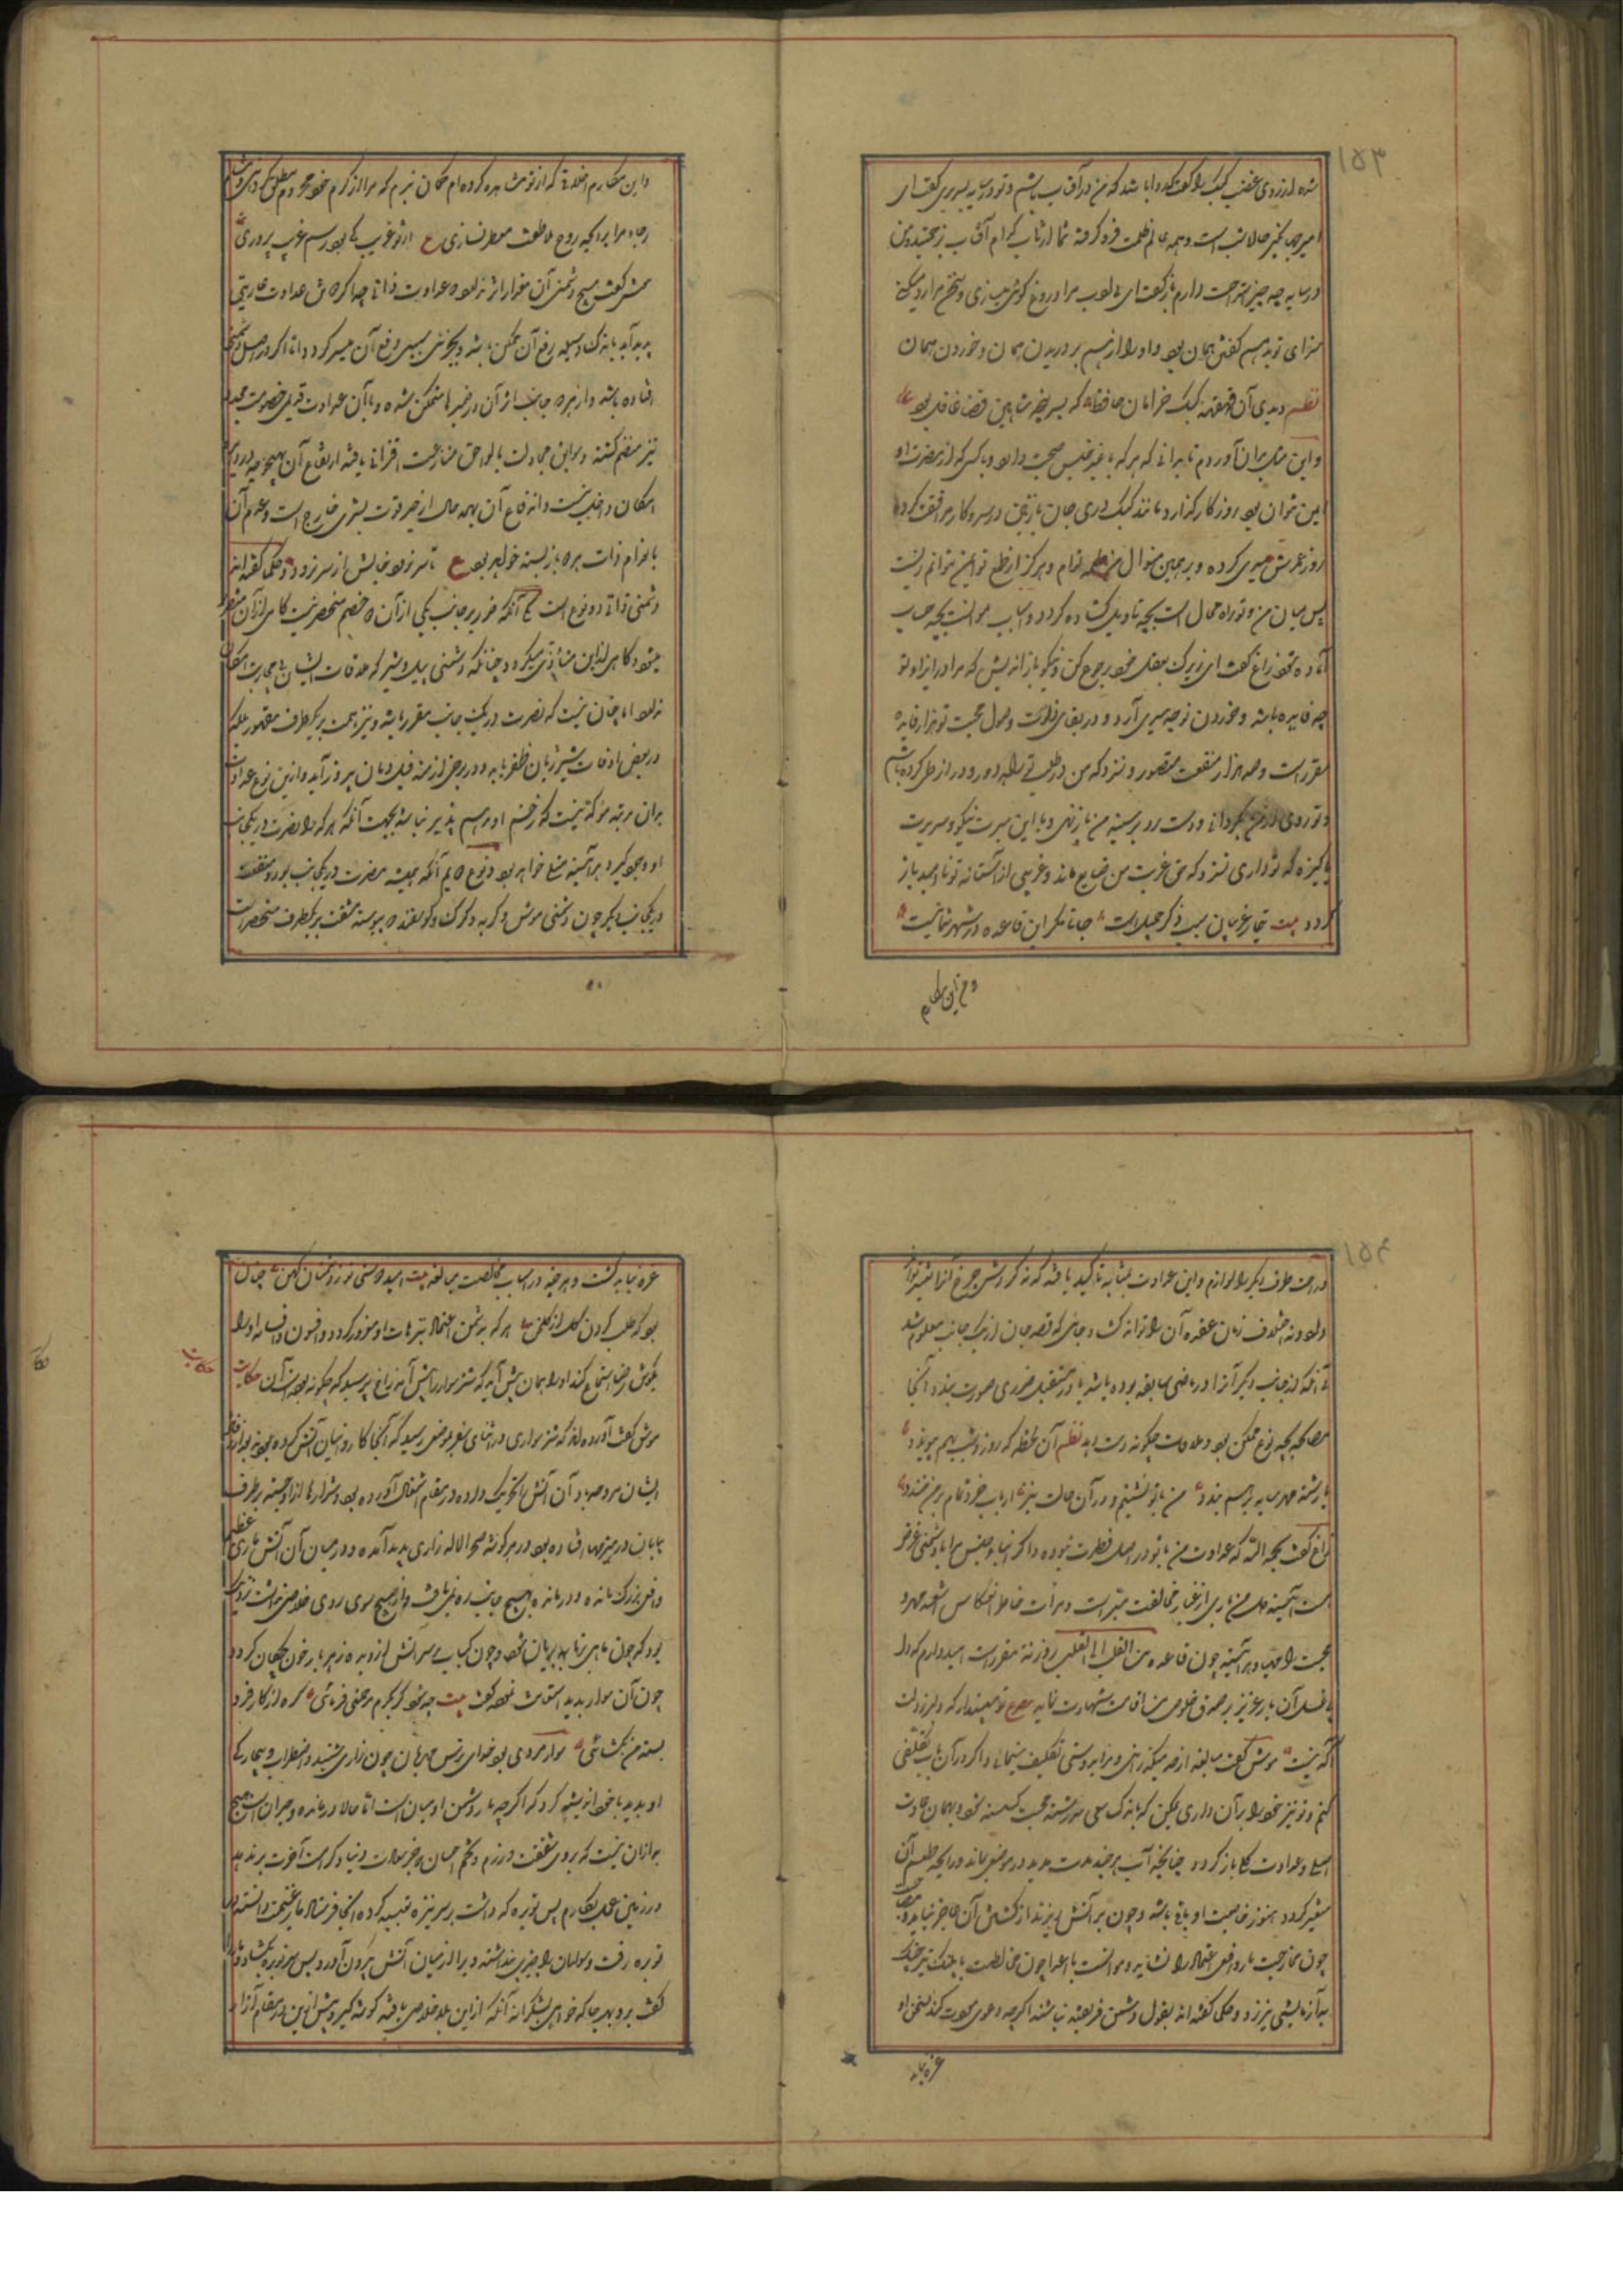 ۱۵۳
شده از روی غضب کبک را گفت که روا باشد که من در آفتاب باشم و تو در سایه بسر بری گفت ای
امیر جهانگیر حالا شب است و همه عالم ظلمت فرو گرفته شما از تاب کدام آفتاب رنجیدید و من
در سایه چه چیز استراحت دارم باز گفت ای بی ادب مرا دروغ گوی میسازی و سخن مرا رد میکنی
سزای تو بدهم گفتن همان بود و او را از هم بر دریدن همان و خوردن همان
نظم دیدی آن قهقهه کبک خرامان حافظ که سر پنجه شاهین قضا غافل بود
و این مثل بر آن آوردم تا بدانی که هر که با غیر جنس صحبت دارد و با کسی که از مضرت او
ایمن نتوان بود روزگار گذارد مانند کبک دری جان نازنین در سر و کار مرافقت کرده
روز عمرش سپری گردد و بر همین منوال من طعمه توام و هرگز از طمع تو ایمن نتوانم زیست
پس میان من و تو راه محال است بچه تاویل گشاده گردد و اسباب موانست بچه حساب
آماده شود زاغ گفت ای زیرک بعقل خود رجوع کن و نیکو باز اندیش که مرا در ایذای تو
چه فایده باشد و خوردن تو چه سیری آرد و در بقای ذات و حصول محبت تو هزار فایده
مقرر است و صد هزار منفعت متصور و نسزد که من در طلب تو راه دور و دراز طی کرده باشم
و تو روی از من بگردانی و دست رد بر سینه من باز نهی و با این سیرت نیکو و سریرت
پاکیزه که تو داری نسزد که حق غربت من ضایع ماند و غریبی از آستانه تو نا امید باز
گردد بیت تیمار غریبان سبب ذکر جمیل است جانا مگر این قاعده در شهر شما نیست
و این مکارم اخلاق که از تو مشاهده کرده‌ام گمان نبرم که مرا از کرم خود محروم مطلق گردانی و مشام
رجاء مرا برایحه روح ملاطفت معطر نسازی ع از تو غریب کی بود رسم غریب پروری
موش گفت هیچ دشمنی آن مقدار اثر ندارد که عداوت ذاتی چه اگر میان دو کس عداوت عاریتی
پدید آید باندک وسیله رفع آن ممکن باشد و بجزئی سببی دفع آن میسر گردد و اما اگر در اصل دشمنی
افتاده باشد و از هر دو جانب اثر آن در ضمیرها متمکن شده و با آن عداوت قدیمی خصومت مجدد
نیز منضم گشته و سوابق مجادلت بالواحق منازعت اقترانی یافته ارتفاع آن بهیچ وجه در دایره
امکان داخل نیست و اندفاع آن بهمه حال از حیز قوت بشری خارج است و عدم آن
بانعدام ذات هر دو باز بسته خواهد بود ع تا سر نرود خیالش از سر نرود و حکما گفته‌اند
دشمنی ذاتی دو نوع است یکی آنکه ضرر بر جانب یکی از آن دو خصم منحصر نیست گاهی از آن متضرر
میشود و گاهی این از آن متاذی میگردد چنانکه دشمنی پیل و شیر که ملاقات ایشان بی محاربت امکان
ندارد اما چنان نیست که نصرت در یک جانب مقرر باشد و نیز هزیمت بر یکطرف مقصور بلکه
در بعضی اوقات شیر ژیان ظفر یابد و در برخی ازمنه فیل دمان پیروز آید و این نوع عداوت
بر آن مرتبه موکد نیست که زخم او مرهم پذیر نباشد بجهت آنکه هر کرا نصرت در یکجانب
او وجود گیرد هر آینه متسلی خواهد بود و نوع دیم آنکه همیشه مضرت در یکجانب بود و منفعت
در یکجانب دیگر چون دشمنی موش و گربه و گرگ و گوسفند که پیوسته مشقت بر یکطرف منحصر است
و من این مکارم
۱۵۴
و راحت طرف دیگر را لوازم و این عداوت بمثابه تاکید یافته که نه گردش چرخ آنرا تغییر تواند
داد و نه اختلاف زمان عقده آن را تواند گشاد و جائی که قصد جان از یک جانب معلوم شد
بی آنکه از جانب دیگر آنرا در ماضی سابقه بوده باشد یا در مستقبل ضرری صورت بندد آنجا
مصالحه بچه نوع ممکن بود و ملاقات چگونه دست دهد نظم آن لحظه که روز و شب بهم پیوندد
با رشته مهر سایه بر هم بندد من با تو نشینم و در آن حالت نیز ارباب خرد تمام بر من خندد
زاغ گفت بحمد الله که عداوت من با تو در اصل فطرت نبوده و اگر ابناء جنس مرا با تو دشمنی عارض
است آئینه دل من باری از غبار مخالفت مبرا است و مرات خاطر انعکاس اشعه مهر و
محبت را مهیا و هر آئینه چون قاعده من القلب الی القلب روزنة مقرر است امیدوارم که دل
بی غل آن یار عزیز بر صدق خلوص من اقامت شهادت نماید مصرع تو مپندار که دل از دلت
آگه نیست موش گفت مبالغه از حد میگذرانی و مرا بر دوستی تکلیف مینمائی و اگر در آن باب تکلفی
کنم و تو نیز خود را بر آن داری یمکن که باندک سببی سر رشته محبت گسسته شود و بهمان عادت
اصلی و عداوت جبلی باز گردد چنانچه آب هر چند مدت مدید در موضعی بماند و رایحه و طعم آن
متغیر گردد هنوز خاصیت او باقی باشد و چون بر آتش ریزند از کشتن آن عاجز نیاید و مصاحبت
چون ممازجت مار و افعی اعتماد را نشاید و موانست با اعدا چون مخالطت با پلنگ تیز چنگ
به آزمایشی نیرزد و حکما گفته‌اند بقول دشمن فریفته نباشند اگر چه دعوی مودت کند و بسخن او
غره نباید گشت و هر چند در اسباب مخالصت مبالغه بیت امید دوستی نو ز دشمنان کهن چنان
بود که طلب کردن گل از گلخن هر که بر دشمن اعتماد نموده بترهات او مغرور گردد و افسون و افسانه او را
بگوش رضا استماع کند او را همان پیش آید که شتر سوار را پیش آمد زاغ پرسید که چگونه بوده است آن حکایت
حکایت
موش گفت آورده‌اند که شتر سواری در اثنای سفر بموضعی رسید که آنجا کاروانیان آتش کرده بودند و بعد از رفتن
ایشان مروحه باد آن آتش را تحریک داده و در مقام اشتعال آورده بود و شرارها از او جسته و هر طرف
بیابان در هیزمها افتاده بود و در هر گوشه صحرا لاله زاری پدید آمده و در میان آن آتش ماری عظیم
و افعی بزرگ مانده و درمانده بهیچ جانب ره نمی یافت و از هیچ سوی روی خلاصی نداشت نزدیک
بود که چون ماهی بر تابه بریان شود و چون کباب بر سر آتش از دیده زهر بار خون چکان گردد
چون آن سوار بدید استغاثت نموده گفت بیت چه شود گر بکرم مرحمتی فرمائی گره از کار فرو
بسته من بگشائی سوار مردی بود خدای ترس و مهربان چون زاری شنید و اضطراب و بیچارگی
او بدید با خود اندیشه کرد که اگر چه مار دشمن آدمیان است اما حالا درمانده و حیران است هیچ
به از آن نیست که بر وی شفقت ورزم و تخم احسان که جز سعادت دنیا و کرامت آخرت بر ندهد
در زمین عمل بکارم پس توبره که داشت بر سر نیزه تعبیه کرده آنجا فرستاد مار غنیمت دانسته در
توبره رفت و سوار آن را چیزی پنداشته و برا از میان آتش بیرون آورد پس سر توبره بگشاد و مار را
گفت برو بهر جا که خواهی بشکرانه آنکه از این بلا خلاصی یافته گوشه گیر و پیش از این در مقام آزار
غره نباید